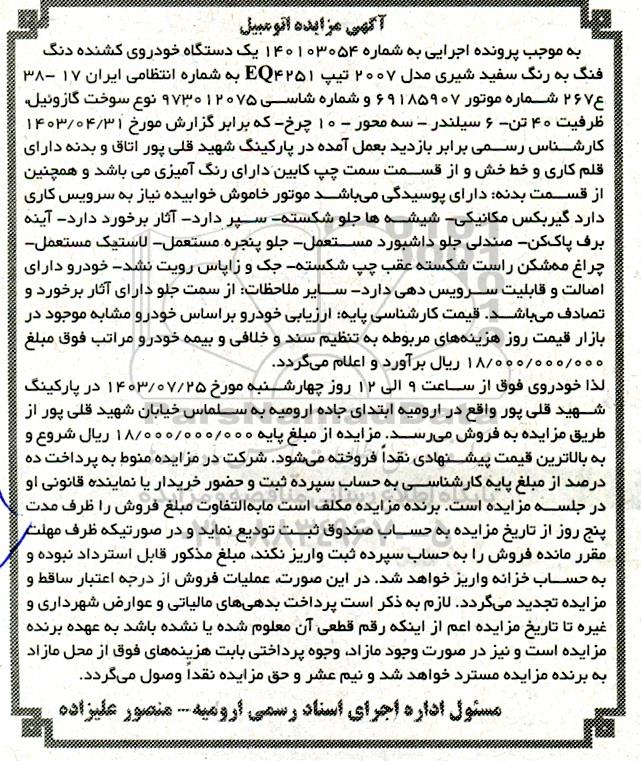 آگهی مزایده اتومبیل
به موجب پرونده اجرایی به شماره ۱۴۰۱۰۳۰۵۴ یک دستگاه خودروی کشنده دنگ
فنگ به رنگ سفید شیری مدل ۲۰۰۷ تیپ EQ۴۲۵۱ به شماره انتظامی ایران ۱۷ –۳۸
ع۲۶۷ شماره موتور ۶۹۱۸۵۹۰۷ و شماره شاسی ۹۷۳۰۱۲۰۷۵ نوع سوخت گازوئیل،
ظرفیت ۴۰ تن– ۶ سیلندر – سه محور – ۱۰ چرخ– که برابر گزارش مورخ ۱۴۰۳/۰۴/۳۱
کارشناس رسمی برابر بازدید بعمل آمده در پارکینگ شهید قلی پور اتاق و بدنه دارای
قلم کاری و خط خش و از قسمت سمت چپ کابین دارای رنگ آمیزی می باشد و همچنین
از قسمت بدنه: دارای پوسیدگی می‌باشد موتور خاموش خوابیده نیاز به سرویس کاری
دارد گیربکس مکانیکی– شیشه ها جلو شکسته– سپر دارد– آثار برخورد دارد– آینه
برف پاک‌کن– صندلی جلو داشبورد مستعمل– جلو پنجره مستعمل– لاستیک مستعمل–
چراغ مه‌شکن راست شکسته عقب چپ شکسته– جک و زاپاس رویت نشد– خودرو دارای
اصالت و قابلیت سرویس دهی دارد– سایر ملاحظات: از سمت جلو دارای آثار برخورد و
تصادف می‌باشد. قیمت کارشناسی پایه: ارزیابی خودرو براساس خودرو مشابه موجود در
بازار قیمت روز هزینه‌های مربوطه به تنظیم سند و خلافی و بیمه خودرو مراتب فوق مبلغ
۱۸/۰۰۰/۰۰۰/۰۰۰ ریال برآورد و اعلام می‌گردد.
لذا خودروی فوق از ساعت ۹ الی ۱۲ روز چهارشنبه مورخ ۱۴۰۳/۰۷/۲۵ در پارکینگ
شهید قلی پور واقع در ارومیه ابتدای جاده ارومیه به سلماس خیابان شهید قلی پور از
طریق مزایده به فروش می‌رسد. مزایده از مبلغ پایه ۱۸/۰۰۰/۰۰۰/۰۰۰ ریال شروع و
به بالاترین قیمت پیشنهادی نقداً فروخته می‌شود. شرکت در مزایده منوط به پرداخت ده
درصد از مبلغ پایه کارشناسی به حساب سپرده ثبت و حضور خریدار یا نماینده قانونی او
در جلسه مزایده است. برنده مزایده مکلف است مابه‌التفاوت مبلغ فروش را ظرف مدت
پنج روز از تاریخ مزایده به حساب صندوق ثبت تودیع نماید و در صورتیکه ظرف مهلت
مقرر مانده فروش را به حساب سپرده ثبت واریز نکند، مبلغ مذکور قابل استرداد نبوده و
به حساب خزانه واریز خواهد شد. در این صورت، عملیات فروش از درجه اعتبار ساقط و
مزایده تجدید می‌گردد. لازم به ذکر است پرداخت بدهی‌های مالیاتی و عوارض شهرداری و
غیره تا تاریخ مزایده اعم از اینکه رقم قطعی آن معلوم شده یا نشده باشد به عهده برنده
مزایده است و نیز در صورت وجود مازاد، وجوه پرداختی بابت هزینه‌های فوق از محل مازاد
به برنده مزایده مسترد خواهد شد و نیم عشر و حق مزایده نقداً وصول می‌گردد.
مسئول اداره اجرای اسناد رسمی ارومیه– منصور علیزاده